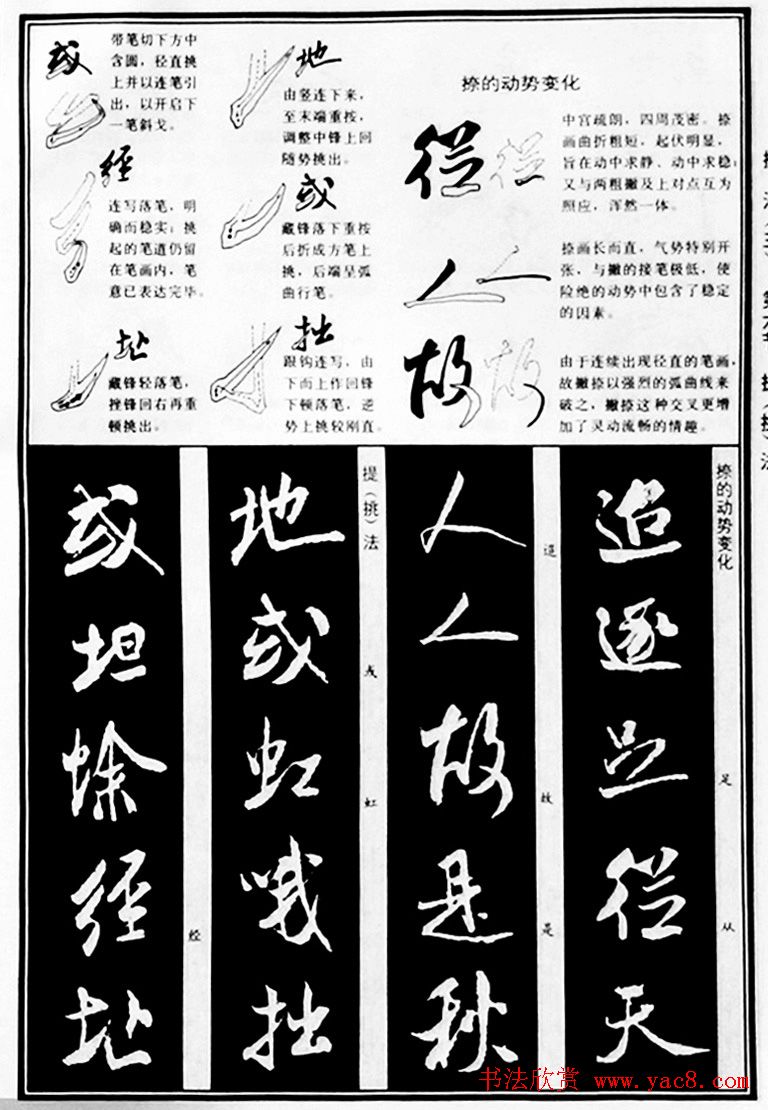 捺的动势变化
從
中宫疏朗，四周茂密。捺
画曲折粗短，起伏明显，
旨在动中求静、动中求稳；
又与两粗撇及上对点互为
照应，浑然一体。
人
捺画长而直，气势特别开
张，与撇的接笔极低，使
险绝的动势中包含了稳定
的因素。
故
由于连续出现径直的笔画，
故撇捺以强烈的弧曲线来
破之，撇捺这种交叉更增
加了灵动流畅的情趣。
地
由竖连下来，
至末端重按，
调整中锋上回
随势挑出。
或
藏锋落下重按
后折成方笔上
挑，后端呈弧
曲行笔。
拙
跟钩连写，由
下而上作回锋
下顿落笔，逆
势上挑较刚直。
或
带笔切下方中
含圆，径直挑
上并以连笔引
出，以开启下
一笔斜戈。
經
连写落笔，明
确而稳实；挑
起的笔道仍留
在笔画内，笔
意已表达完毕。
址
藏锋轻落笔，
挫锋回右再重
顿挑出。
捺的动势变化
足
从
追逐足從天
故
是
人人故是秋
提（挑）法
或
虹
地或虹哦拙
经
或坦蜍經址
书法欣赏 www.yac8.com